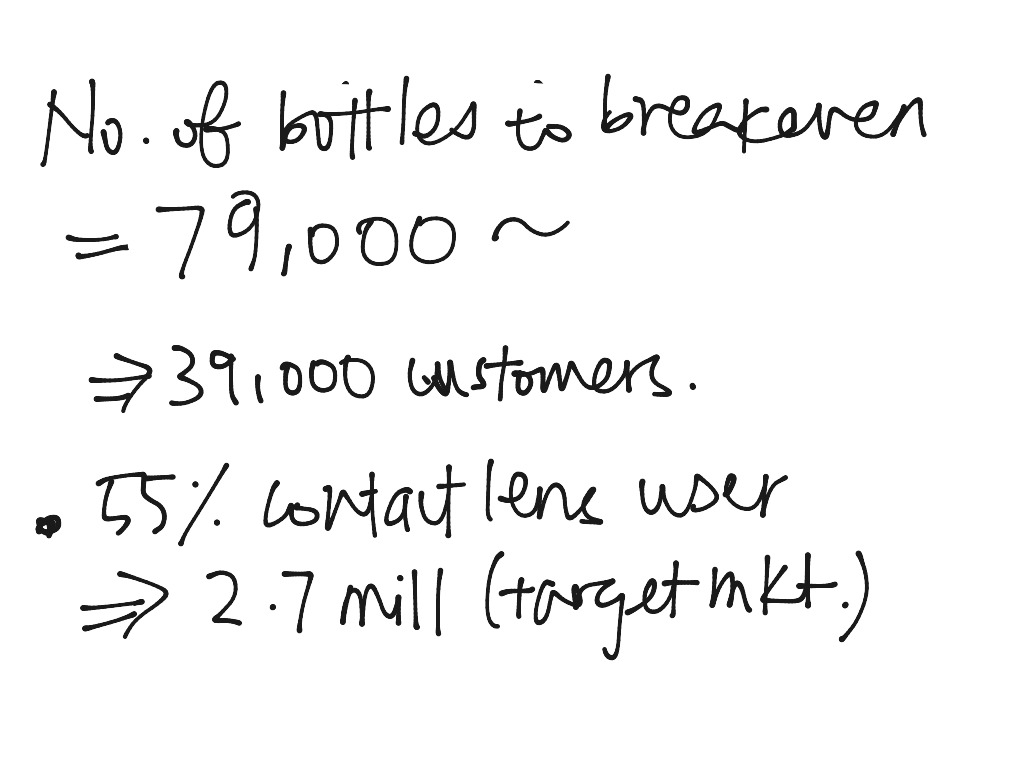 No. of bottles to breakeven
= 79,000 ~
⇒ 39,000 customers.
• 55% contact lens user
⇒ 2.7 mill (target mkt.)